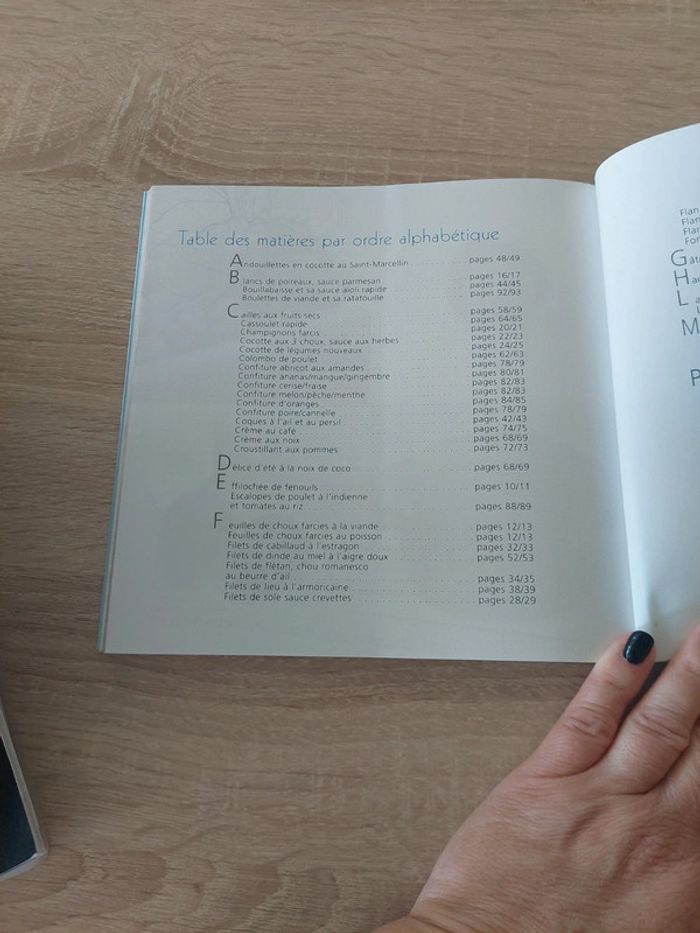 Table des matières par ordre alphabétique
Andouillettes en cocotte au Saint-Marcellin pages 48/49
Blancs de poireaux, sauce parmesan pages 16/17
Bouillabaisse et sa sauce aïoli rapide pages 44/45
Boulettes de viande et sa ratatouille pages 92/93
Cailles aux fruits secs pages 58/59
Cassoulet rapide pages 64/65
Champignons farcis pages 20/21
Cocotte aux 3 choux, sauce aux herbes pages 22/23
Cocotte de légumes nouveaux pages 24/25
Colombo de poulet pages 62/63
Confiture abricot aux amandes pages 78/79
Confiture ananas/mangue/gingembre pages 80/81
Confiture cerise/fraise pages 82/83
Confiture melon/pêche/menthe pages 82/83
Confiture d'oranges pages 84/85
Confiture poire/cannelle pages 78/79
Coques à l'ail et au persil pages 42/43
Crème au café pages 74/75
Crème aux noix pages 68/69
Croustillant aux pommes pages 72/73
Délice d'été à la noix de coco pages 68/69
Effilochée de fenouils pages 10/11
Escalopes de poulet à l'indienne
et tomates au riz pages 88/89
Feuilles de choux farcies à la viande pages 12/13
Feuilles de choux farcies au poisson pages 12/13
Filets de cabillaud à l'estragon pages 32/33
Filets de dinde au miel à l'aigre doux pages 52/53
Filets de flétan, chou romanesco
au beurre d'ail pages 34/35
Filets de lieu à l'armoricaine pages 38/39
Filets de sole sauce crevettes pages 28/29
Flan
Flan
Flan
G
H
L
M
P